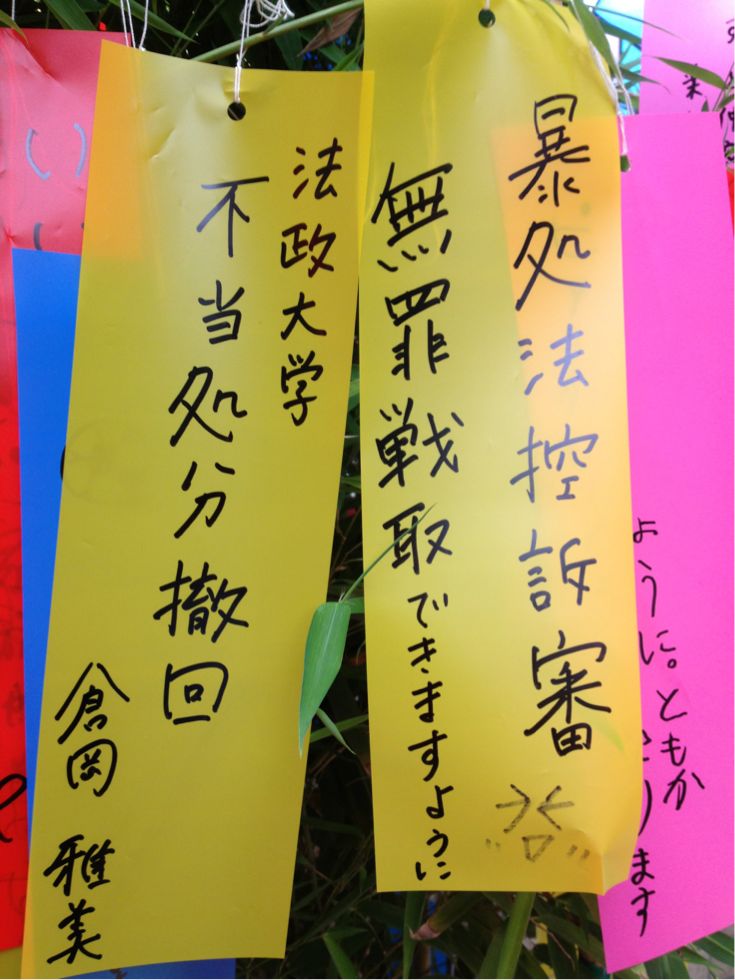 暴処法控訴審
無罪戦取できますように
法政大学
不当処分撤回
倉岡 雅美
ように。ともか
ります